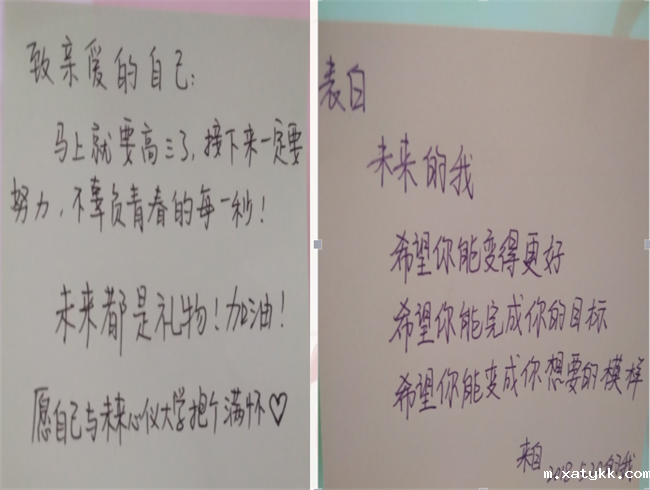 致亲爱的自己:
马上就要高三了,接下来一定要
努力,不辜负青春的每一秒!
未来都是礼物!加油!
愿自己与未来心仪大学抱个满怀♡
表白
未来的我
希望你能变得更好
希望你能完成你的目标
希望你能变成你想要的模样
来自2018.5.20的我
m.xatykk.com